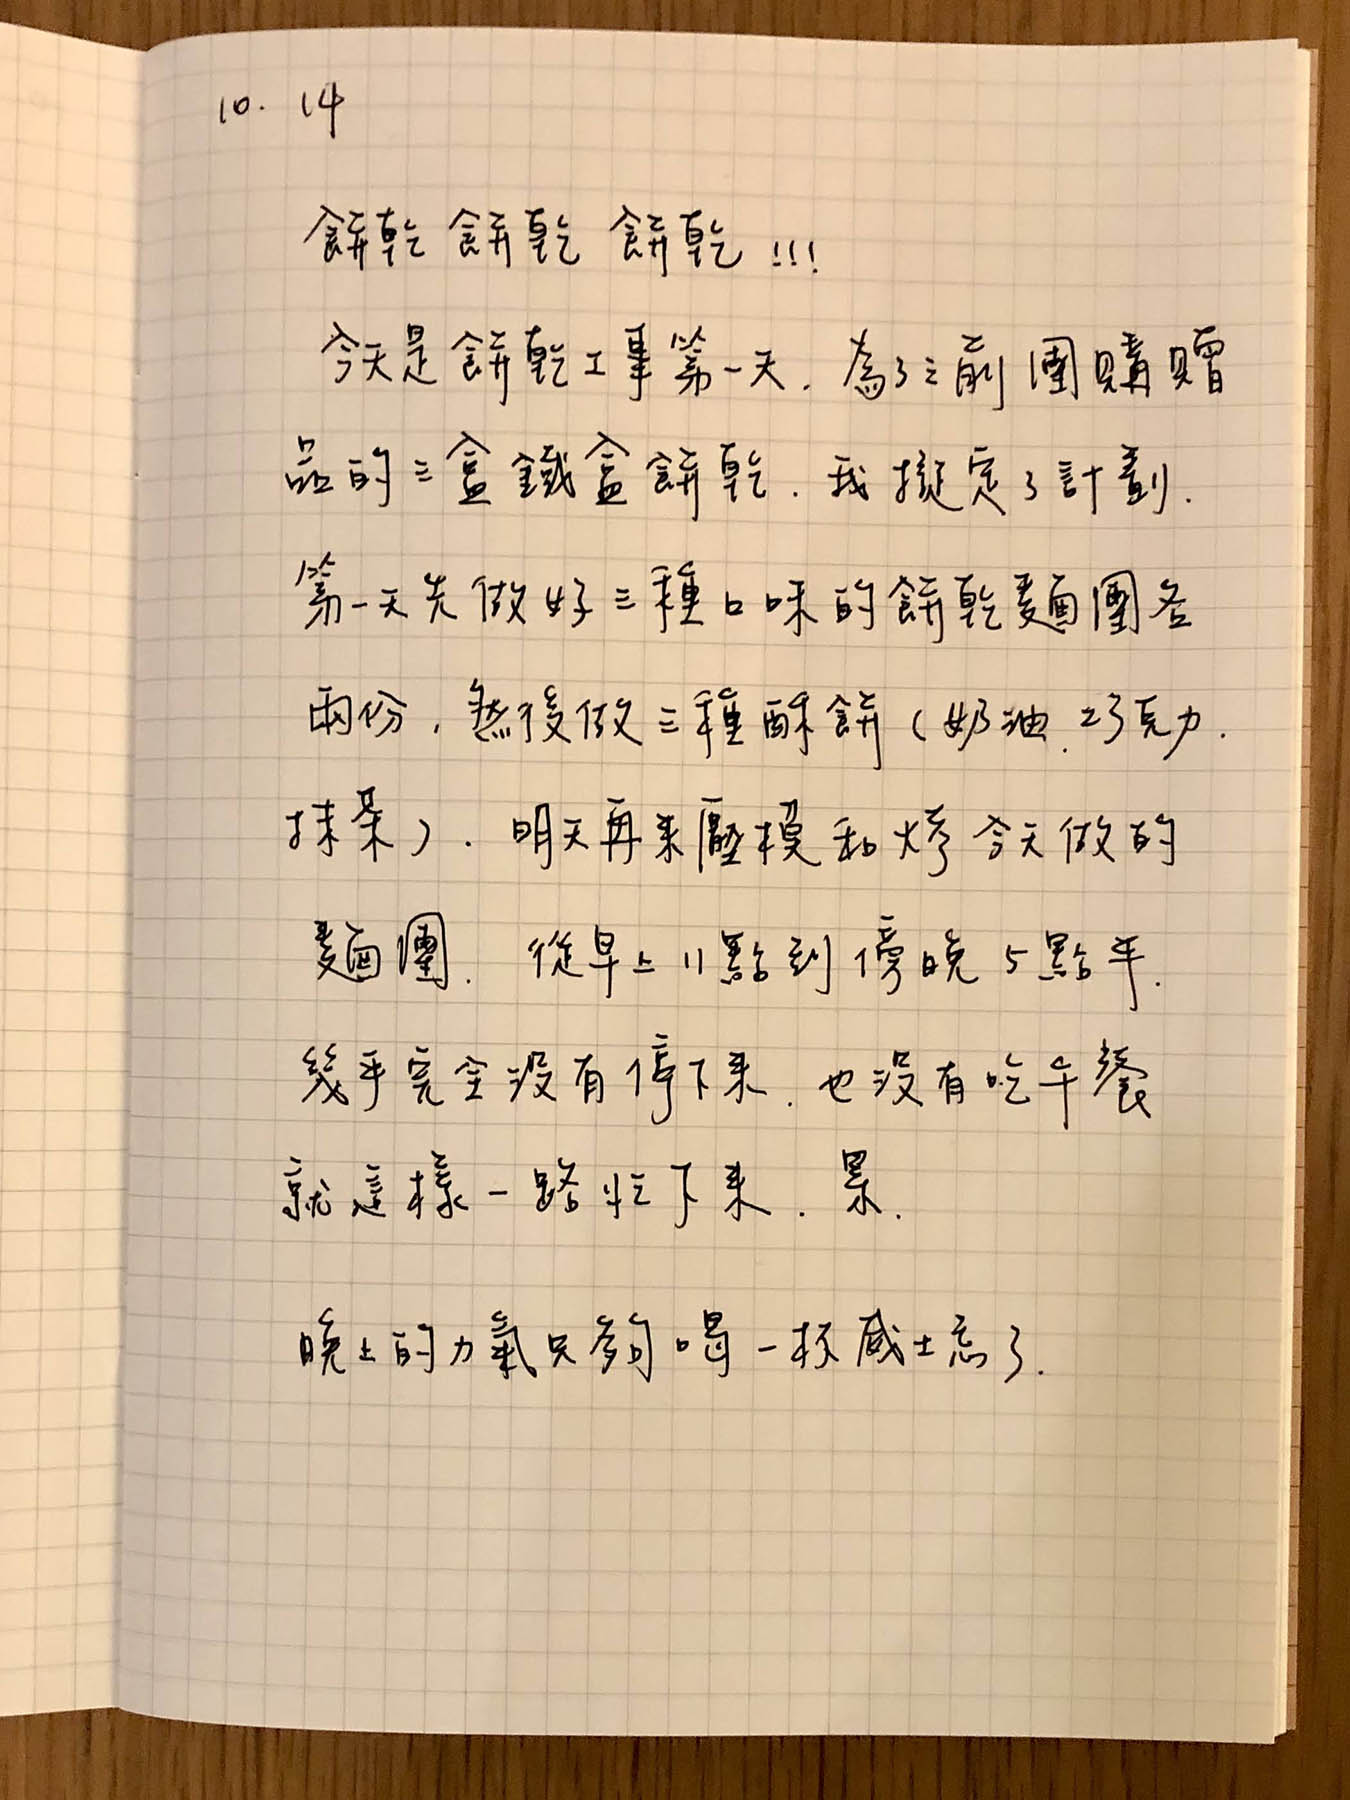 10. 14
餅乾 餅乾 餅乾 !!!
今天是餅乾工事第一天. 為了之前團購贈
品的三盒鐵盒餅乾. 我擬定了計劃.
第一天先做好三種口味的餅乾麵團各
兩份, 然後做三種酥餅 (奶油. 巧克力.
抹茶). 明天再來壓模和烤今天做的
麵團. 從早上11點到傍晚5點半.
幾乎完全沒有停下來. 也沒有吃午餐
就這樣一路忙下來. 累.
晚上的力氣只夠喝一杯威士忌了.